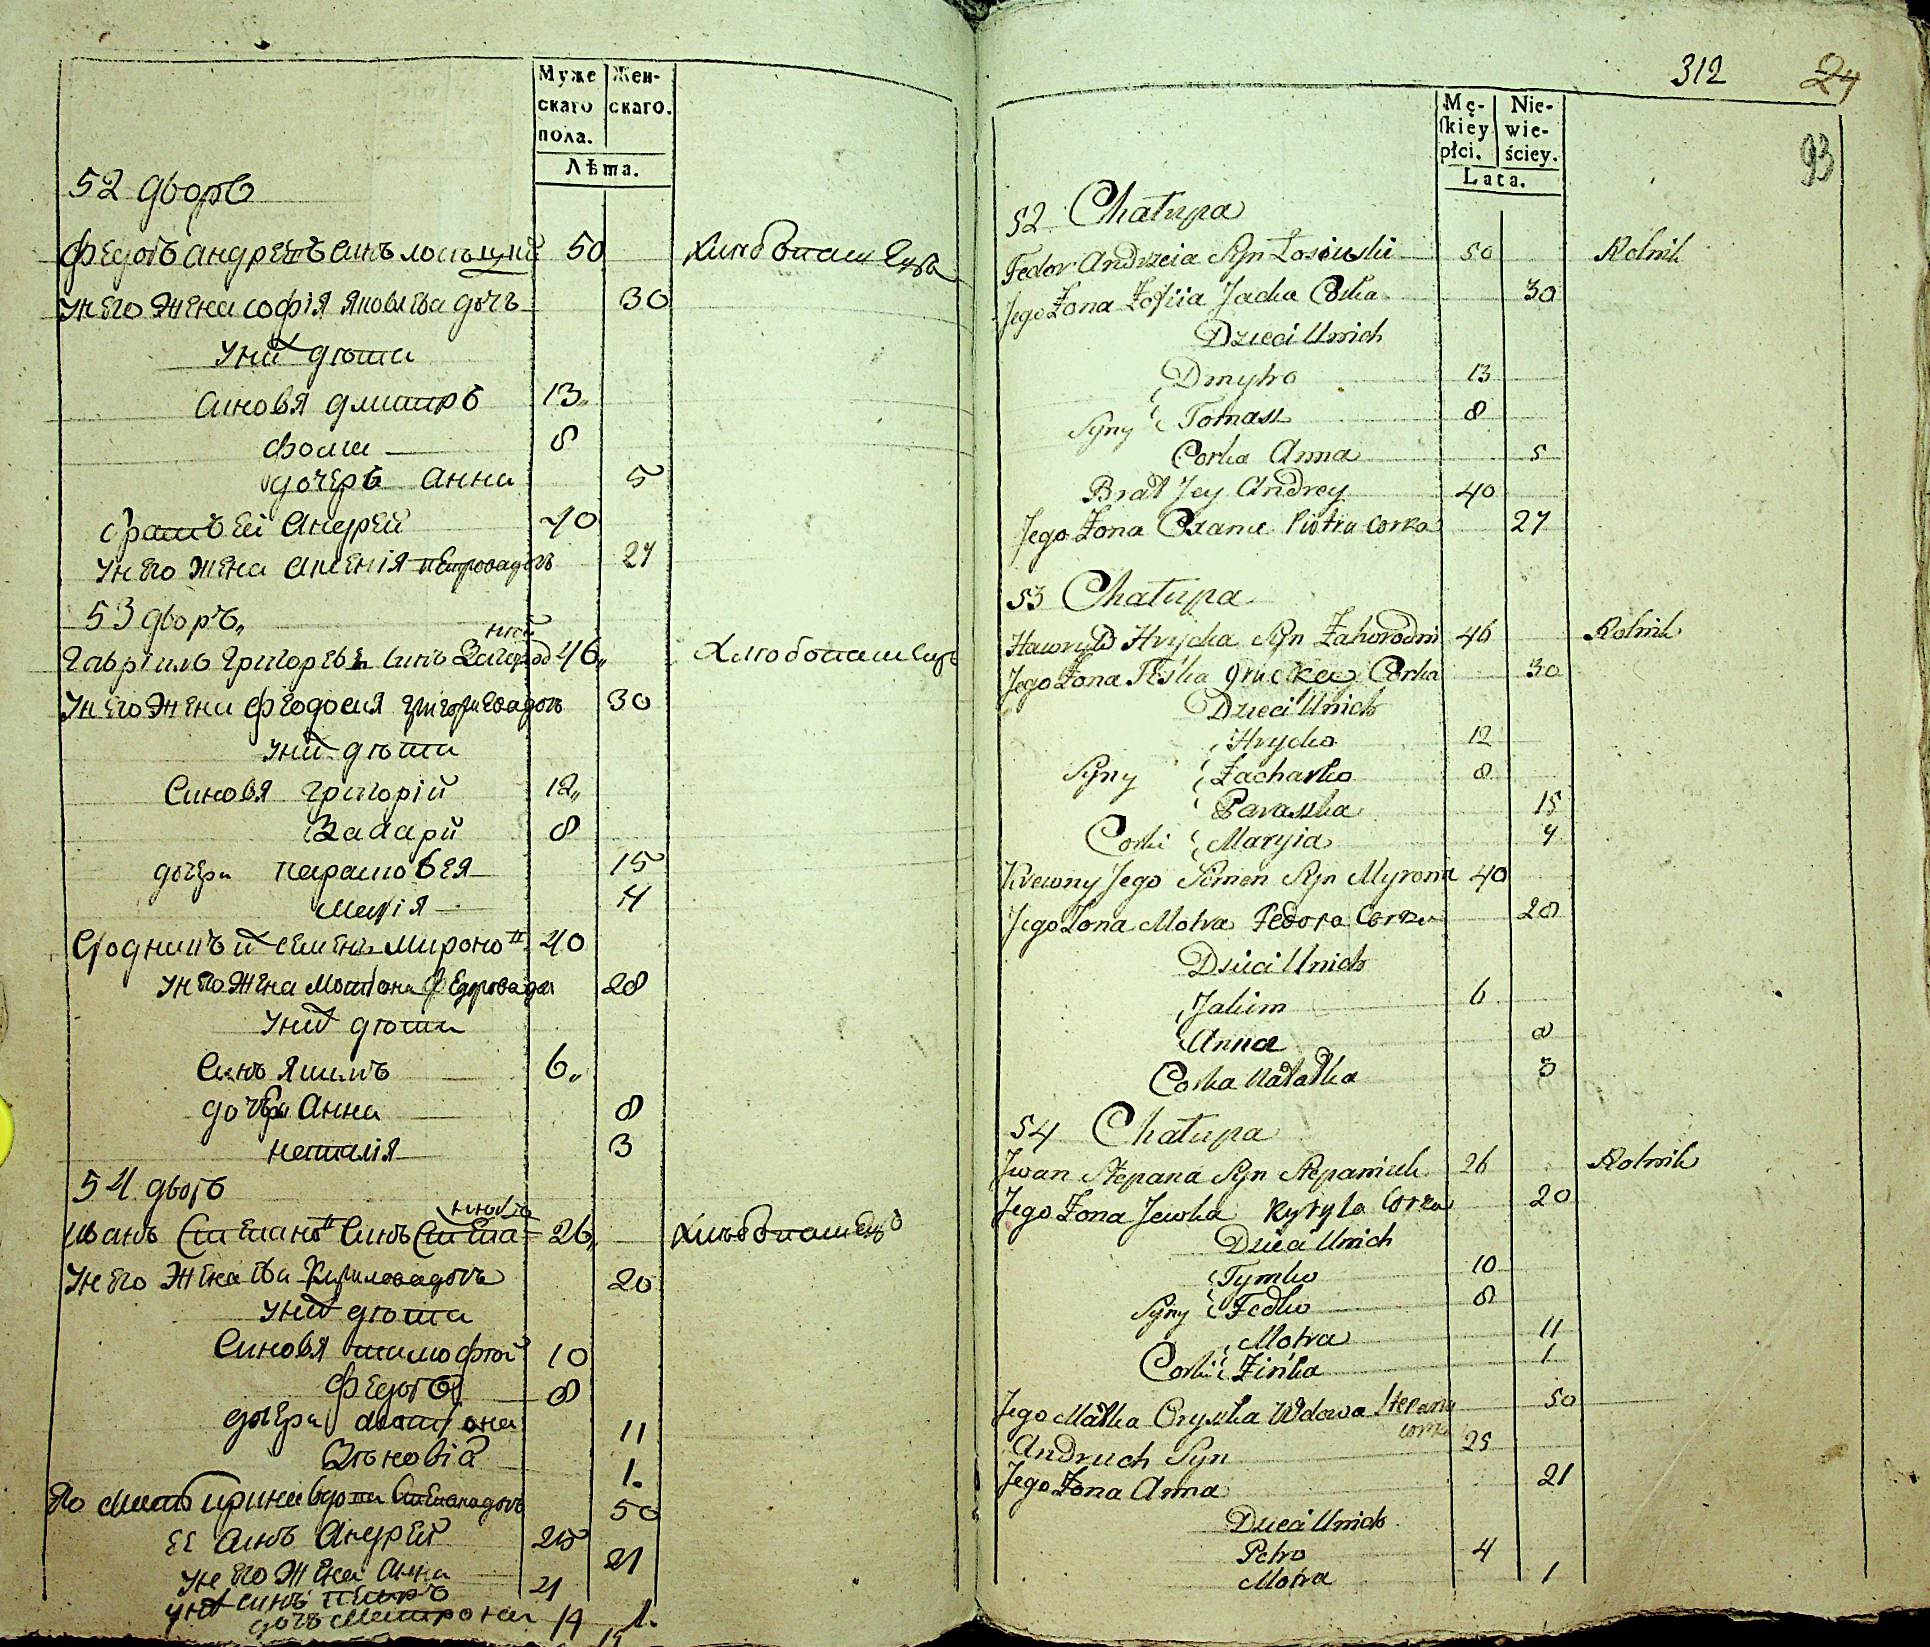 Муже
скаго
пола.
Жен-
скаго.
Лѣта.
52 дворъ
Федоръ андреевъ синъ лосьцкий 50 хлѣбопашецъ
у него жена софія яковлева дочь 30
у нихъ дѣти
синовя дмитръ 13
Фома 8
дочеръ Анна 5
братъ ей Андрей 40
у него жена Аксенія петрова дочь 27
53 дворъ
гавріилъ григорьевъ синъ Загородний 46 хлѣбопашецъ
у него жена Феодосия григориева дочь 30
у нихъ дѣти
синовя григорій 12
Захарій 8
дочери парасковея 15
Марія 4
сродникъ семенъ мироновъ 40
у него жена Мотрона Федорова дочь 28
у нихъ дѣти
синъ якимъ 6
дочери Анна 8
наталія 3
54 дворъ
иванъ Степановъ синъ Степанюкъ 26 хлѣбопашецъ
у него жена Ева Кирилова дочь 20
у нихъ дѣти
синовя тимофтей 10
Федоръ 8
дочери мотрона 11
Зѣновія 1
его мать ирина вдова Степанова дочь 50
ее синъ Андрей 25
у него жена анна 21
у нихъ синъ петръ 4
дочъ матрона 1
312 24
93
Mę-
ſkiéy
płci.
Nie-
wie-
ściey.
Lata.
52 Chałupa
Fedor Andrzeia Syn Łosiuski 50 Rolnik
Jego Żona Zofiia Jacka Corka 30
Dzieci Unich
Dmytro 13
Syny Tomasz 8
Corka Anna 5
Brat Jey Andrey 40
Jego Żona Oxana Piotra corka 27
53 Chałupa
Hawryło Hrycka Syn Zahorodni 46 Rolnik
Jego Żona Teśka Grycka Corka 30
Dzieci Unich
Hrycko 12
Syny Zacharko 8
Paraszka 15
Corki Maryia 4
Krewny Jego Simon Syn Myrona 40
Jego Żona Motra Fedora Corka 28
Dzieci Unich
Jakim 6
Anna 8
Corka Natałka 3
54 Chałupa
Jwan Stepana Syn Stepaniuk 26 Rolnik
Jego Żona Jewka Kyryła Corka 20
Dzieci Unich
Tymko 10
Syny Fedko 8
Motra 11
Corki Zińka 1
Jego Matka Oryszka Wdowa Stepana corka 50
Andruch Syn 25
Jego Żona Anna 21
Dzieci Unich
Petro 4
Motra 1